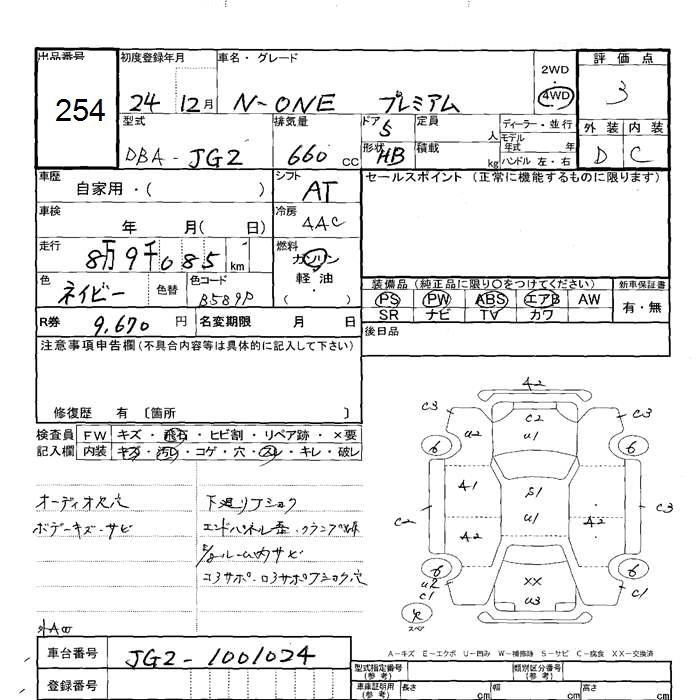 出品番号 初度登録年月 車名・グレード 2WD 評価点
254 24 12月 N-ONE プレミアム 4WD 3
型式 排気量 ドア 定員 ディーラー・並行 外装 内装
DBA-JG2 660 CC 5 人 モデル年式 年 D C
形状 HB 積載 kg ハンドル 左・右
車歴 自家用・( ) シフト AT セールスポイント (正常に機能するものに限ります)
車検 年 月( 日) 冷房 AAC
走行 8万9千085 km 燃料 ガソリン・軽油 ( )
色 ネイビー 色替 色コード B589P
装備品 (純正品に限り○をつけてください) 新車保証書
PS PW ABS エアB AW 有・無
SR ナビ TV カワ
R券 9,670 円 名変期限 月 日 後日品
注意事項申告欄(不具合内容等は具体的に記入して下さい)
修復歴 有 〔箇所 〕
検査員 FW キズ・飛石・ヒビ割・リペア跡・×要
記入欄 内装 キズ・汚レ・コゲ・穴・スレ・キレ・破レ
オーディオ欠穴 下廻りフショク
ボデーキズ・サビ エンドパネル歪・クランプ
ルーム内サビ
コアサポ
A2
C3 C2 C3
U2 U1
6 6
A1 S1
C2 U1 A2 C3
A2
6 XX 6
U2 C1 U3 C1
スペア
A-キズ E-エクボ U-凹み W-補修跡 S-サビ C-腐食 XX-交換済
車台番号 JG2-1001024
登録番号
型式指定番号 (参考) 類別区分番号 (参考)
車庫証明用 (参考) 長さ cm 幅 cm 高さ cm